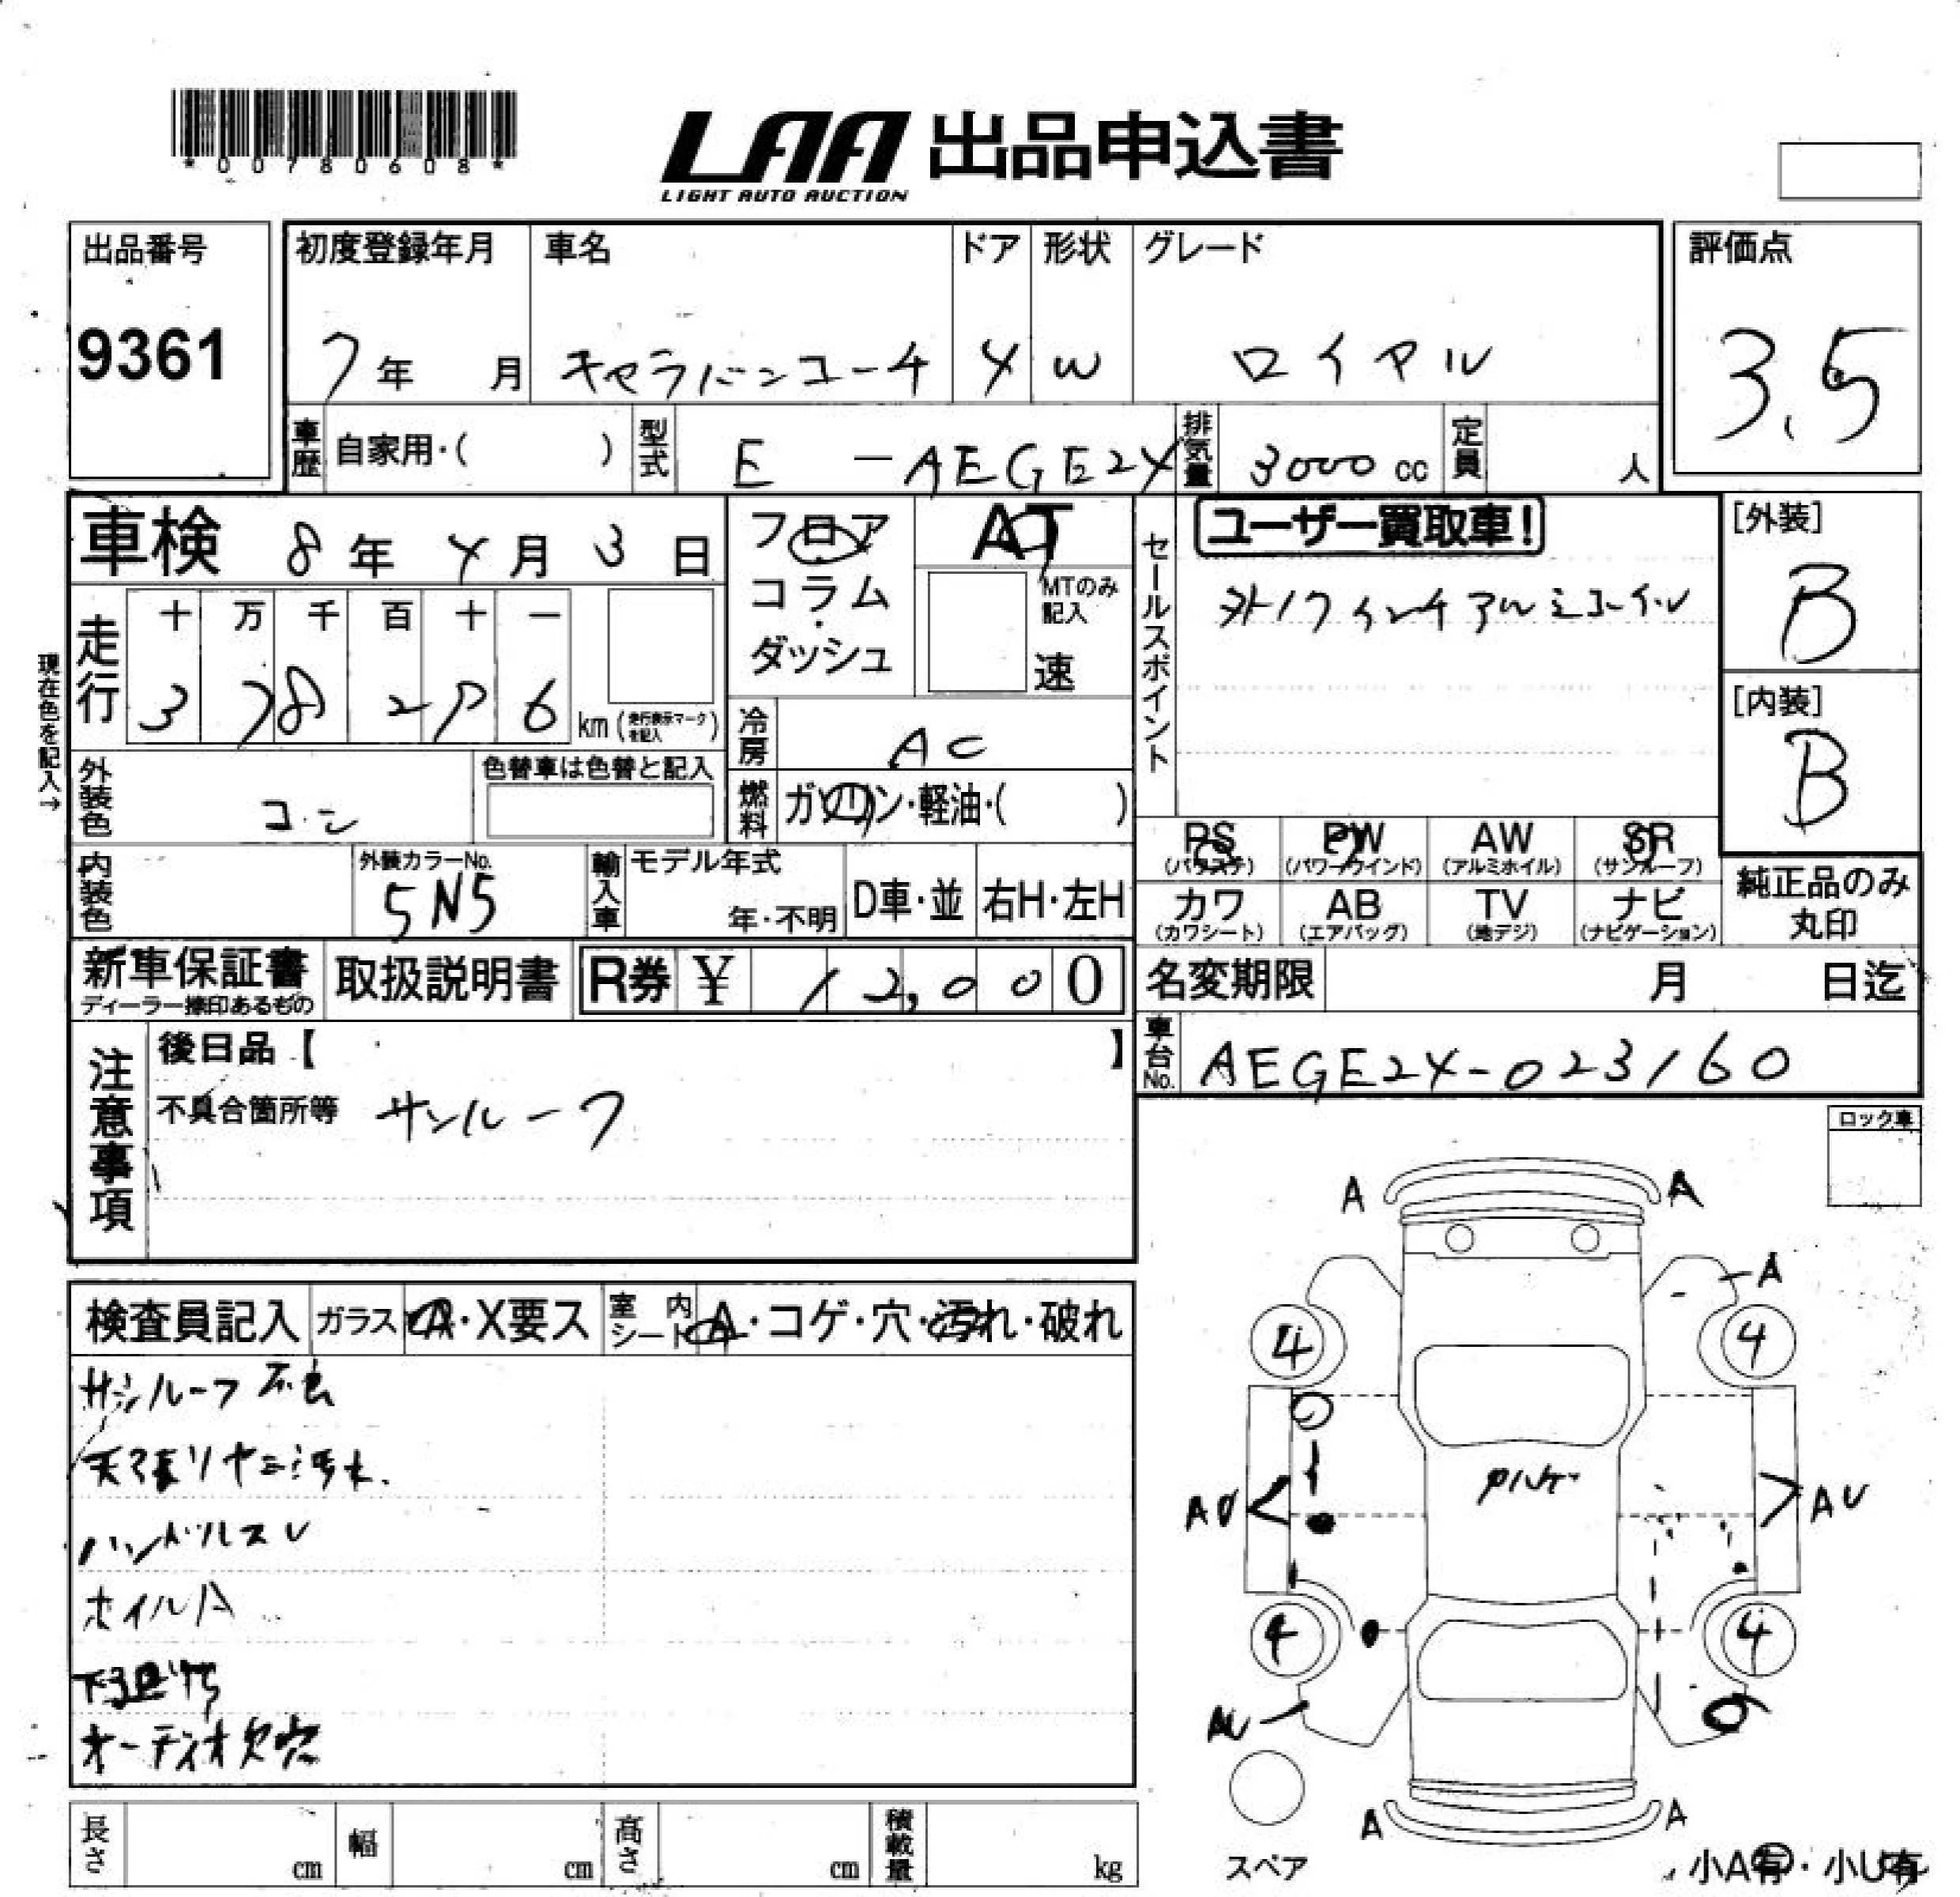 *00780608*
LAA 出品申込書
LIGHT AUTO AUCTION
出品番号 初度登録年月 車名 ドア 形状 グレード 評価点
9361 7年 月 キャラバンコーチ 4 W ロイアル 3.5
車歴 自家用・( ) 型式 E - AEGE24 排気量 3000 cc 定員 人
車検 8年 4月 3日 フロア AT ユーザー買取車! [外装]
コラム・ダッシュ MTのみ記入 速
セールスポイント B
走行 十 万 千 百 十 一
3 78 2 6 km (走行表示マークを記入)
現在色を記入→
[内装]
冷房 AC B
外装色 コン 色替車は色替と記入 燃料 ガソリン・軽油・( )
PS PW AW SR
(パワステ) (パワーウインド) (アルミホイル) (サンルーフ)
内装色 外装カラーNo. 5N5 輸入車 モデル年式 年・不明 D車・並 右H・左H
カワ AB TV ナビ 純正品のみ丸印
(カワシート) (エアバッグ) (地デジ) (ナビゲーション)
新車保証書 取扱説明書 R券 ¥ 12,000 名変期限 月 日迄
ディーラー捺印あるもの
車台No. AEGE24-023160
注意事項 後日品【 】
不具合箇所等 サンルーフ
ロック車
検査員記入 ガラス A・X要ス 室内シート A・コゲ・穴・汚れ・破れ
サンルーフ 不良
天張リヤニ汚れ.
ハンドルスレ
ホイルA
オーディオ欠穴
A A
A
4 4
AU AU
4 4
AU
A A
スペア 小A有・小U有
長さ cm 幅 cm 高さ cm 積載量 kg